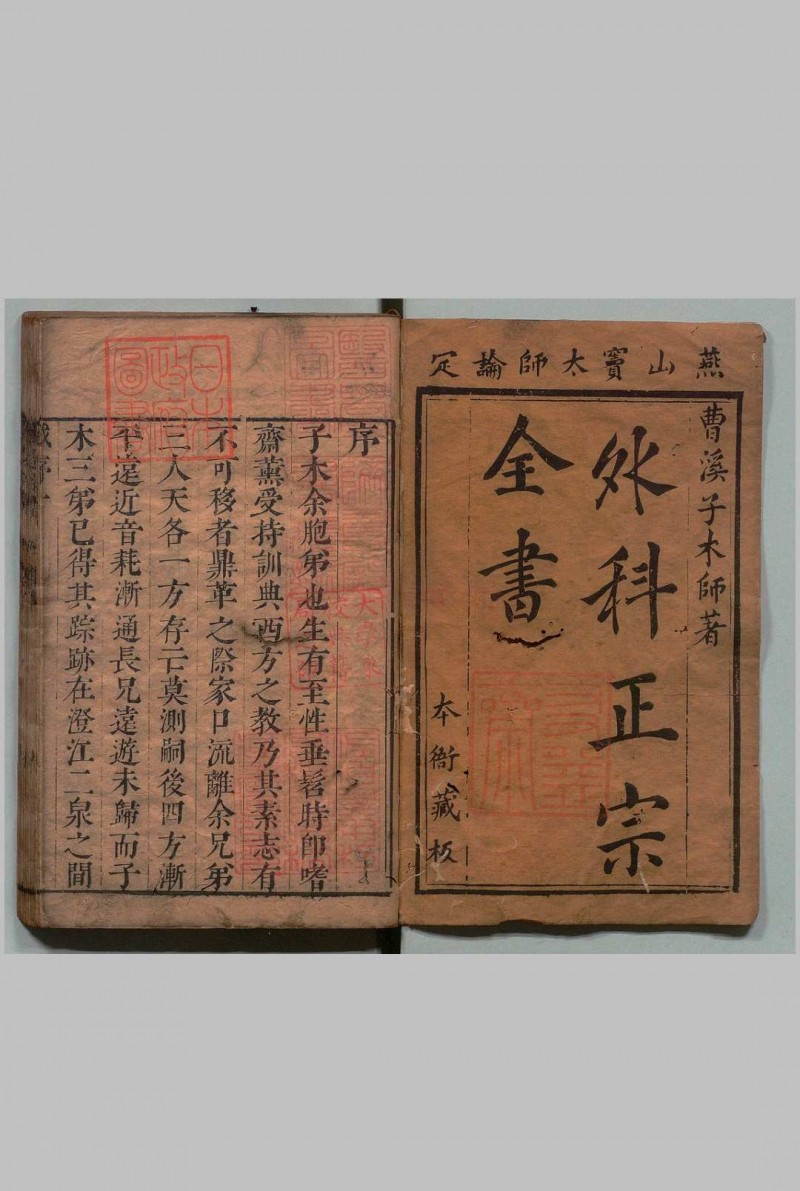 燕山竇太師論定
曹溪子木師著
外科正宗
全書
本衙藏板
序
子木余胞弟也生有至性垂髫時即嗜
齋薰受持訓典西方之教乃其素志有
不可移者鼎革之際家口流離余兄弟
三人天各一方存亡莫測嗣後四方漸
平遠近音耗漸通長兄遠遊未歸而子
木三弟已得其踪跡在澄江二泉之間
序一
日本
政府
圖書